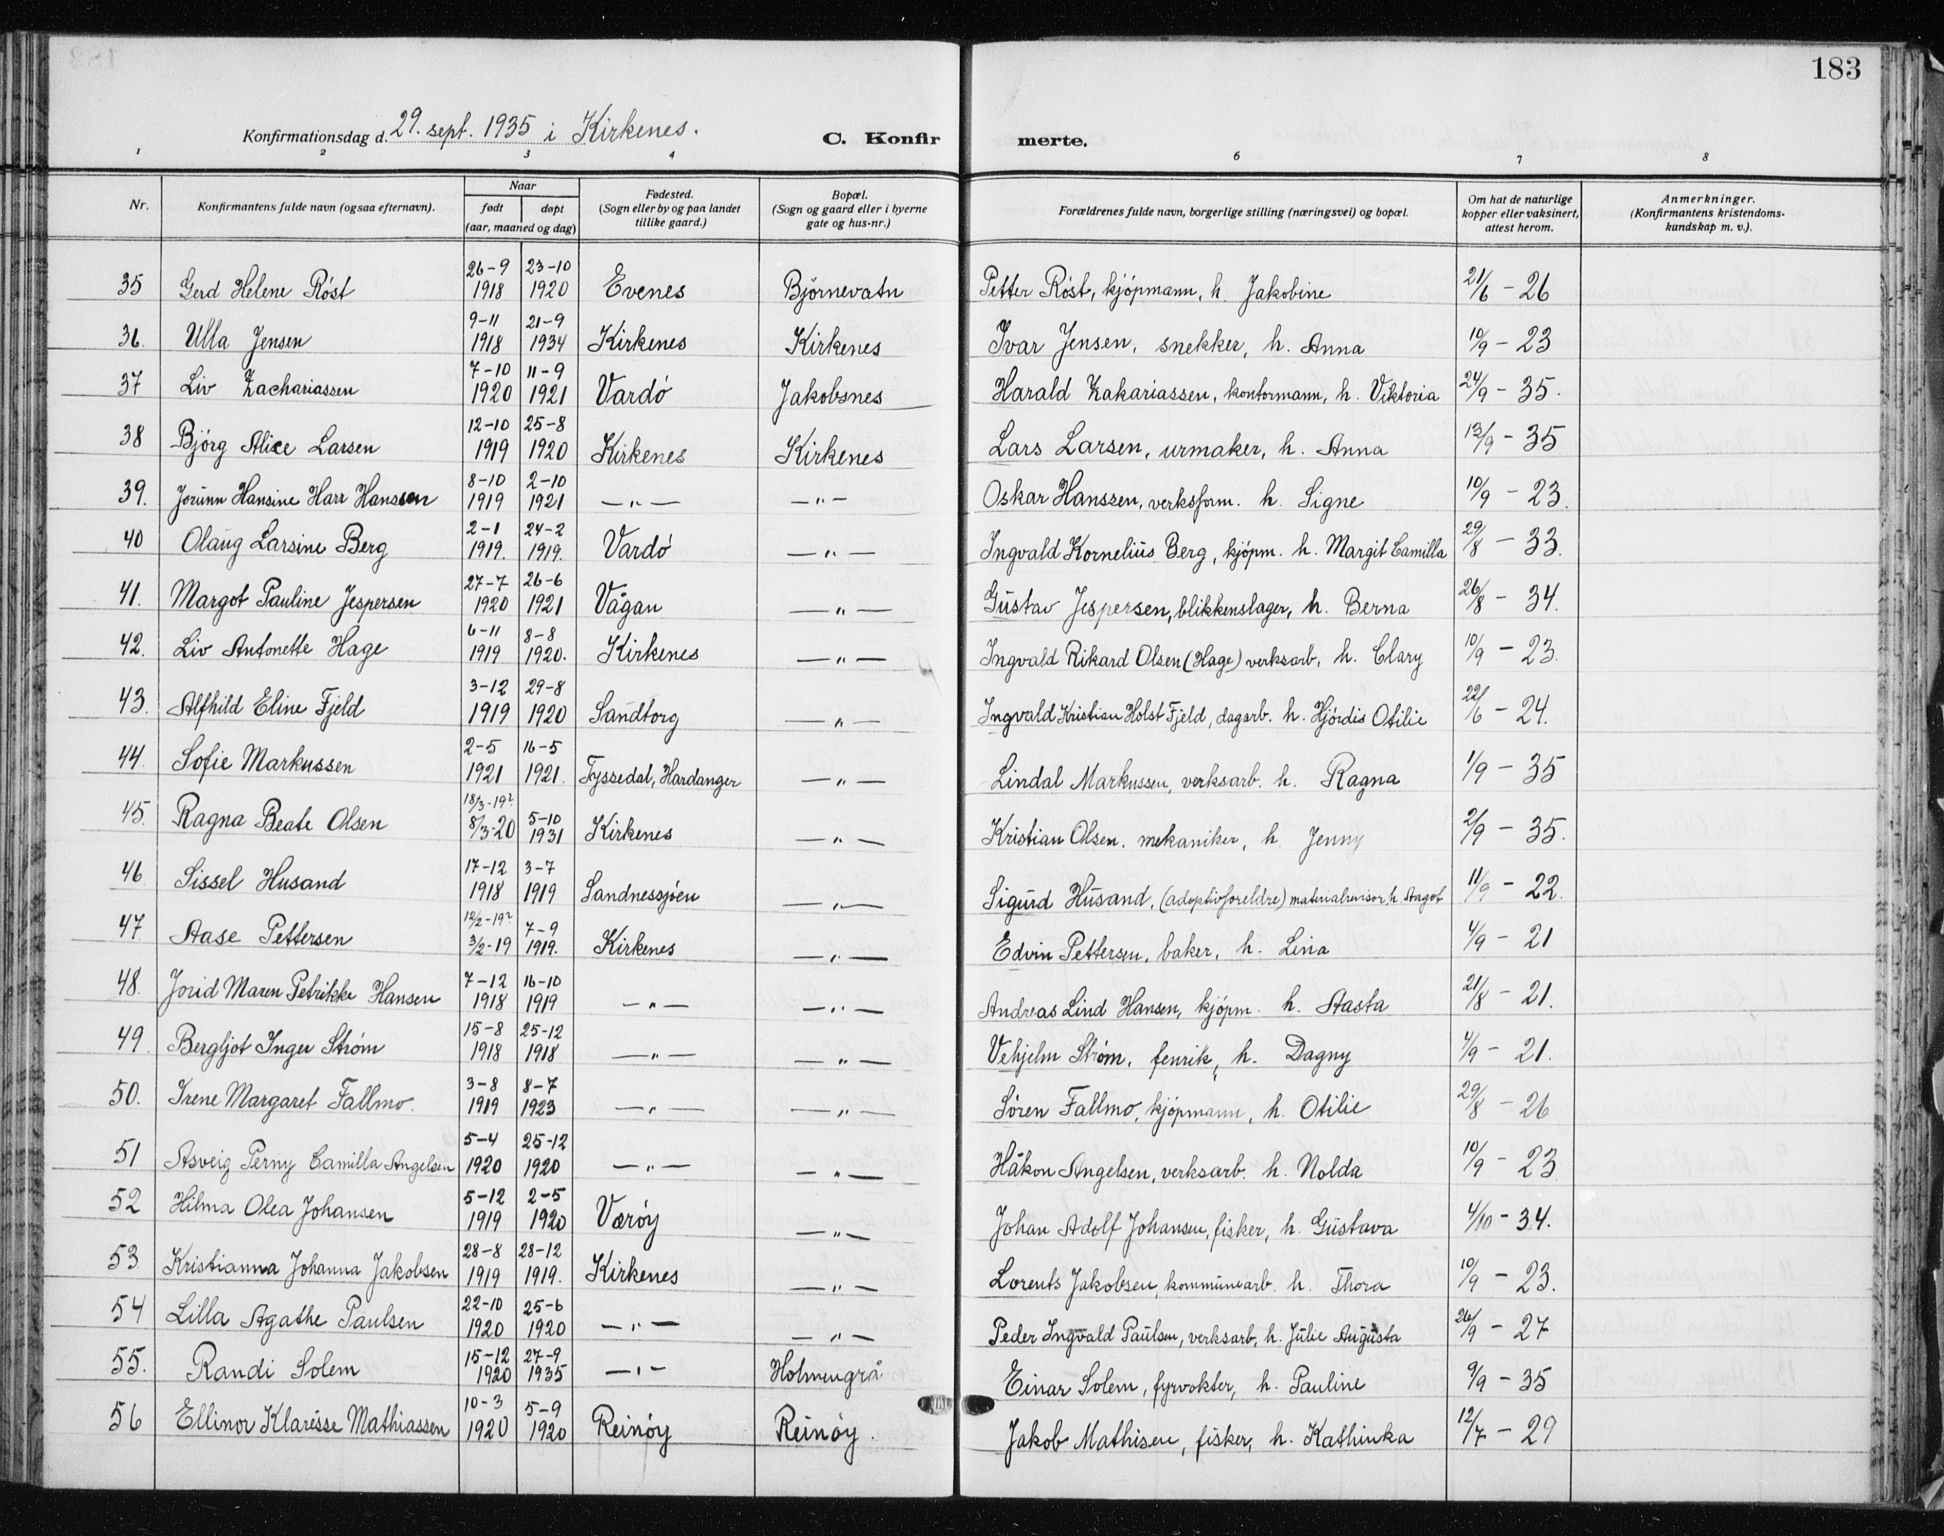 183
Konfirmationsdag d. 29. sept. 1935 i Kirkenes. C. Konfirmerte.
1 2 3 4 6 7 8
Nr. Konfirmantens fulde navn (ogsaa efternavn). Naar født døpt (aar, maaned og dag) Fødested. (Sogn eller by og paa landet tillike gaard.) Bopæl. (Sogn og gaard eller i byerne gate og hus-nr.) Forældrenes fulde navn, borgerlige stilling (næringsvei) og bopæl. Om hat de naturlige kopper eller vaksinert, attest herom. Anmerkninger. (Konfirmantens kristendoms-kundskap m. v.).
35 Gerd Helene Röst 26-9 1918 23-10 1920 Evenes Björnevatn Petter Röst, kjöpmann, h. Jakobine 21/6 - 26
36. Ulla Jensen 9-11 1918 21-9 1934 Kirkenes Kirkenes Ivar Jensen, snekker, h. Anna 10/9 - 23
37 Liv Zachariassen 7-10 1920 11-9 1921 Vardö Jakobsnes Harald Zakariassen, kontormann, h. Viktoria 24/9 - 35.
38 Björg Alice Larsen 12-10 1919 25-8 1920 Kirkenes Kirkenes Lars Larsen, urmaker, h. Anna 13/9 - 35
39. Jorunn Hansine Harr Hanssen 8-10 1919 2-10 1921 — „ — — „ — Oskar Hanssen, verksform. h. Signe 10/9 - 23.
40 Olaug Larsine Berg 2-1 1919. 24-2 1919. Vardö — „ — Ingvald Kornelius Berg, kjöpm. h. Margit Camilla 29/8 - 33.
41. Margot Pauline Jespersen 27-7 1920 26-6 1921 Vågan — „ — Gustav Jespersen, blikkenslager, h. Berna 26/8 - 34.
42. Liv Antonette Hage 6-11 1919 8-8 1920. Kirkenes — „ — Ingvald Rikard Olsen (Hage) verksarb. h. Clary 10/9 - 23.
43. Alfhild Eline Fjeld 3-12 1919 29-8 1920 Sandtorg — „ — Ingvald Kristian Holst Fjeld, dagarb. h. Hjördis Otilie 22/6 - 24.
44. Sofie Markussen 2-5 1921 16-5 1921. Tyssedal, Hardanger — „ — Lindal Markussen, verksarb. h. Ragna 1/9 - 35
45. Ragna Beate Olsen 18/3-19? 8/3-20 5-10 1931 Kirkenes — „ — Kristian Olsen, mekaniker, h. Jenny 2/9 - 35.
46 Sissel Husand 17-12 1918 3-7 1919 Sandnessjöen — „ — Sigurd Husand, (adoptivforeldre) materialrevisor, h. Aagot 11/9 - 22.
47. Aase Pettersen 12/2-19? 3/2-19 7-9 1919. Kirkenes — „ — Edvin Pettersen, baker, h. Lina 4/9 - 21
48. Jorid Maren Petrikke Hansen 7-12 1918 16-10 1919 — „ — — „ — Andreas Lind Hansen, kjöpm. h. Aasta 21/8 - 21.
49. Bergljot Inger Ström 15-8 1918 25-12 1918 — „ — — „ — Vehjelm Ström, fenrik, h. Dagny 4/9 - 21.
50. Irene Margaret Fallmo. 3-8 1919 8-7 1923 — „ — — „ — Sören Fallmo, kjöpmann, h. Otilie 29/8 - 26
51 Asveig Perny Camilla Angelsen 5-4 1920 25-12 1920 — „ — — „ — Håkon Angelsen, verksarb. h. Nolda 10/9 - 23
52 Hilma Olea Johansen 5-12 1919 2-5 1920 Væröy — „ — Johan Adolf Johansen, fisker, h. Gustava 4/10 - 34.
53. Kristianna Johanna Jakobsen 28-8 1919 28-12 1919. Kirkenes — „ — Lorents Jakobsen, kommunearb. h. Thora 10/9 - 23.
54 Lilla Agathe Paulsen 22-10 1920 25-6 1920 — „ — — „ — Peder Ingvald Paulsen, verksarb, h. Julie Augusta 26/9 - 27
55. Randi Solem 15-12 1920 27-9 1935 — „ — Holmengrå Einar Solem, fyrvokter, h. Pauline 9/9 - 35
56 Ellinor Klarisse Mathiassen 10-3 1920 5-9 1920 Reinöy Reinöy. Jakob Mathisen, fisker, h. Kathinka 12/7 - 29